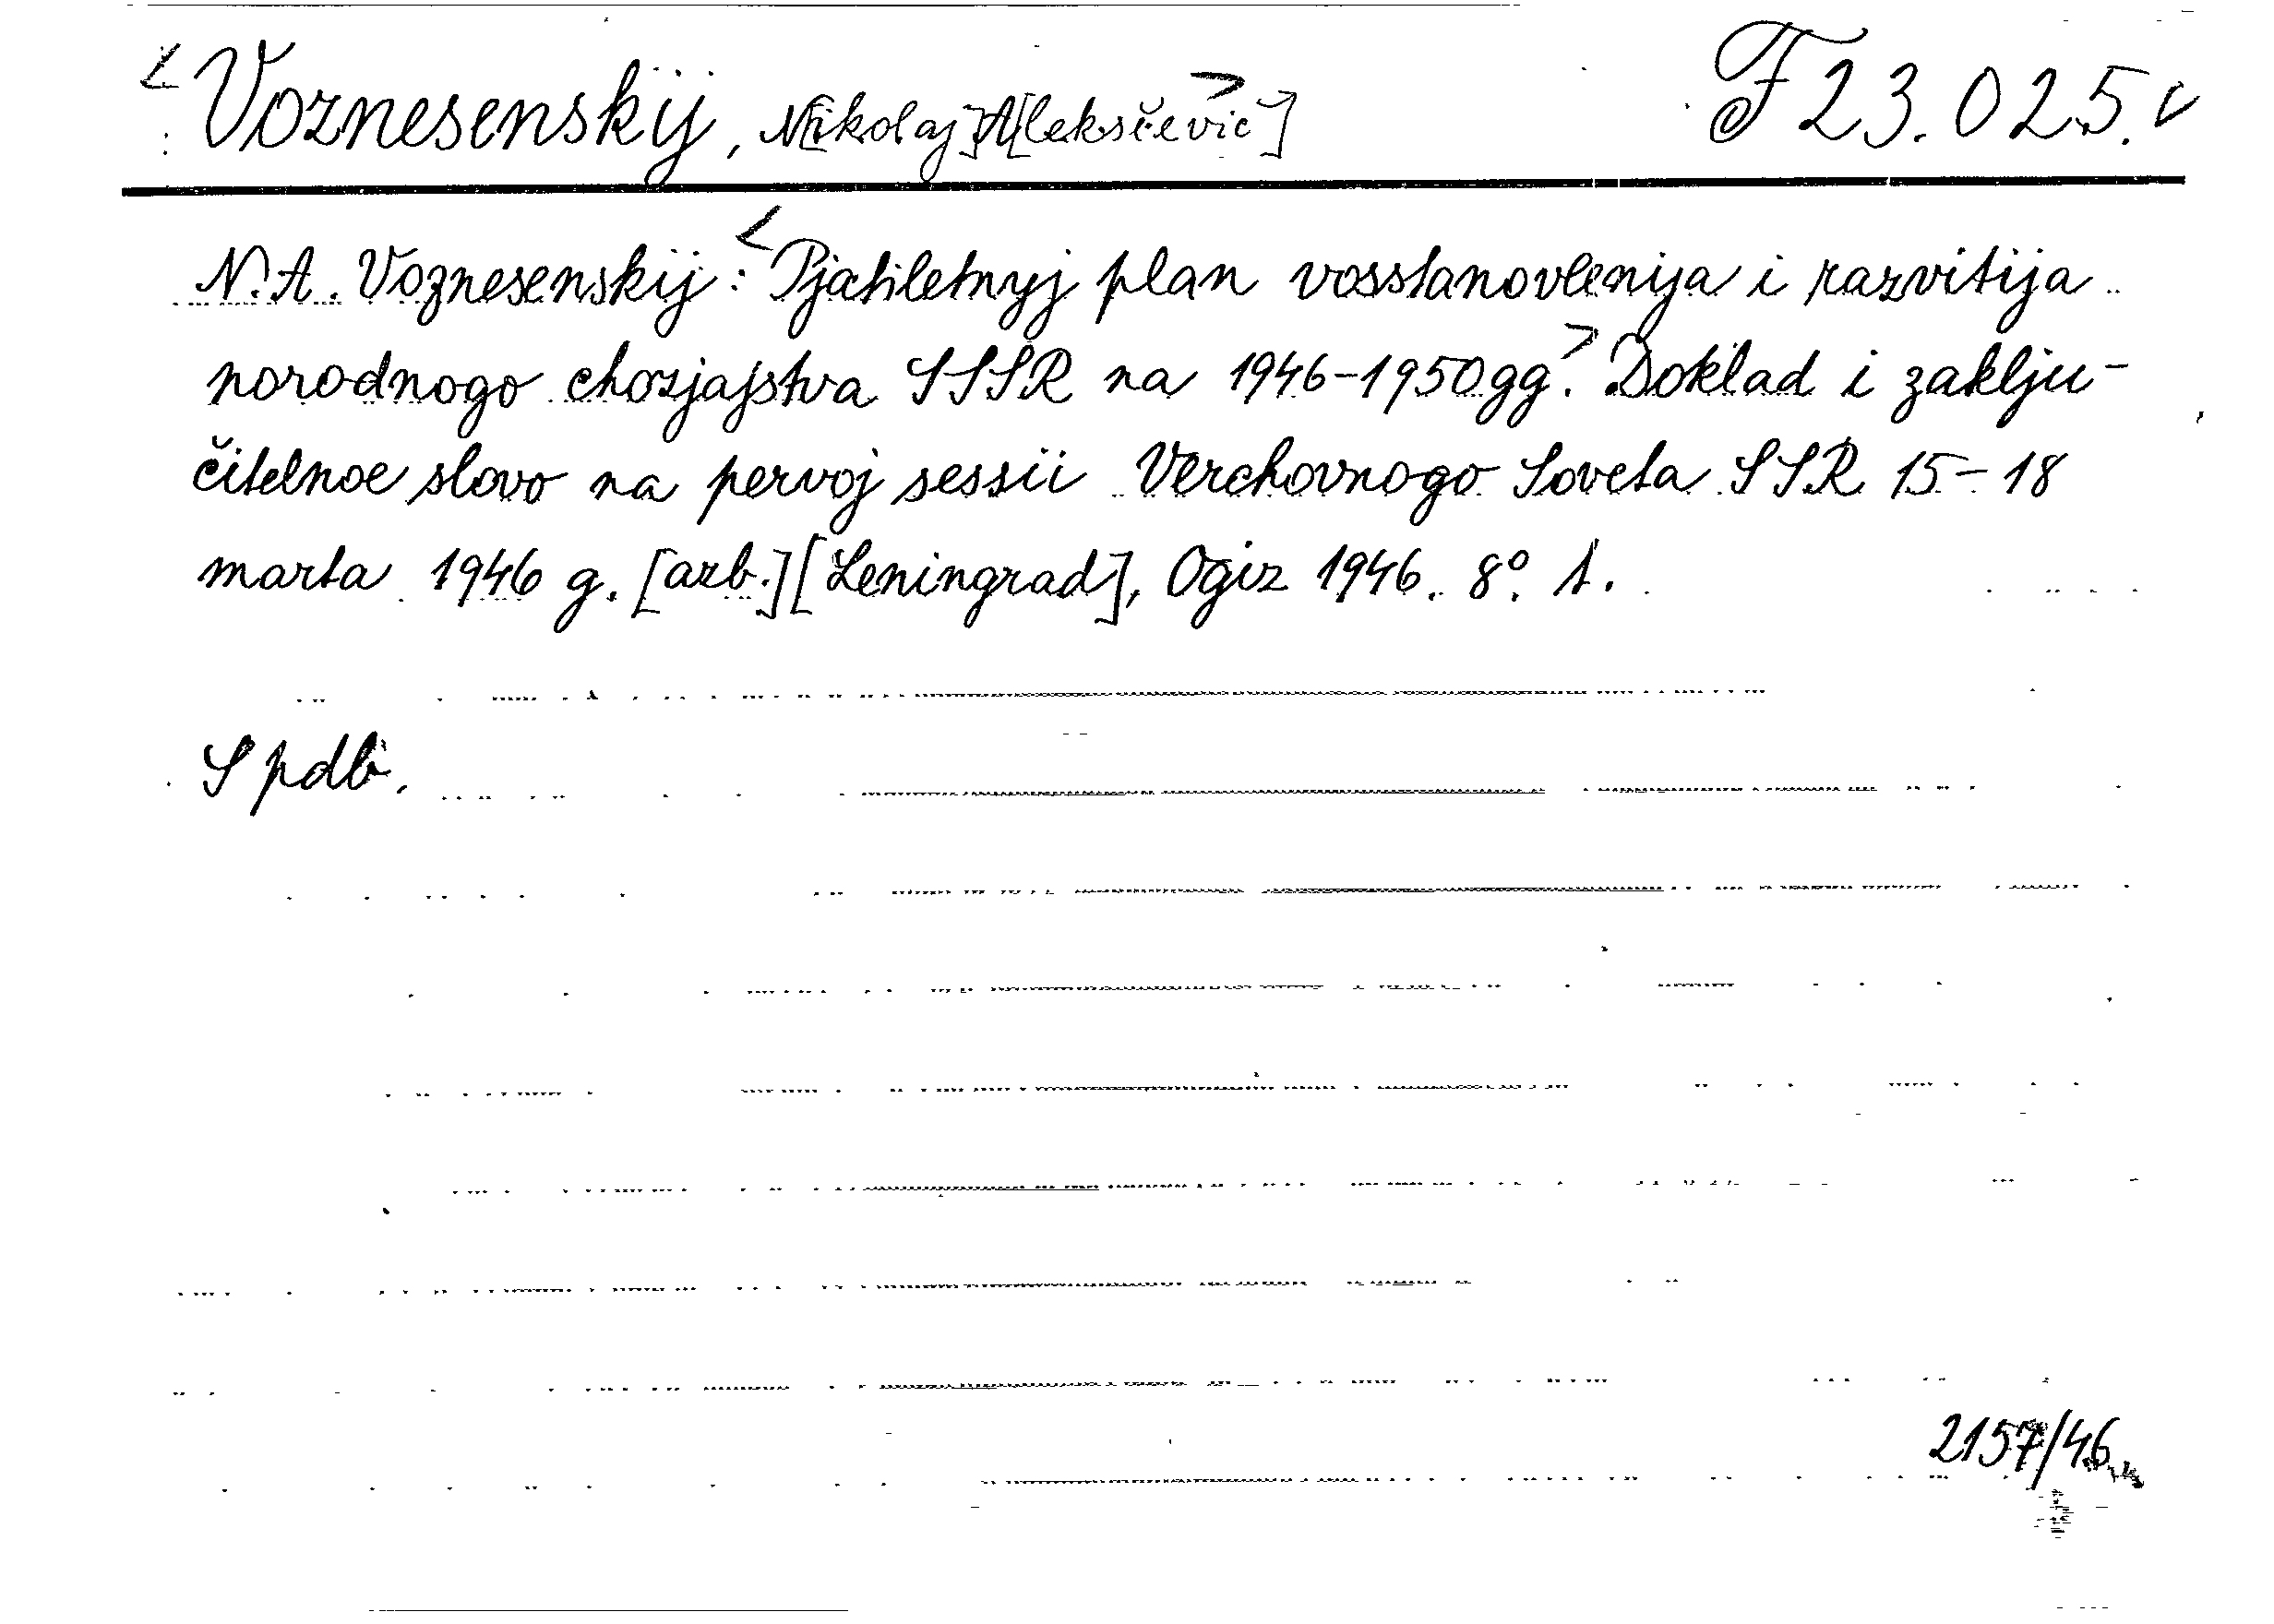 <Voznesenskij, N[ikolaj] A[leksčevic>] F 23.025.v
N. A. Voznesenskij: <Pjatiletnyj plan vosstanovlenija i razvitija
norodnogo chozjajstva SSSR na 1946-1950gg>. Doklad i zaklju-
čitelnoe slovo na pervoj sessii Verchovnogo Soveta SSR 15-18
marta 1946 g. [azb.] [Leningrad], Ogiz 1946. 8°. 1.
S pdb.
2157/46